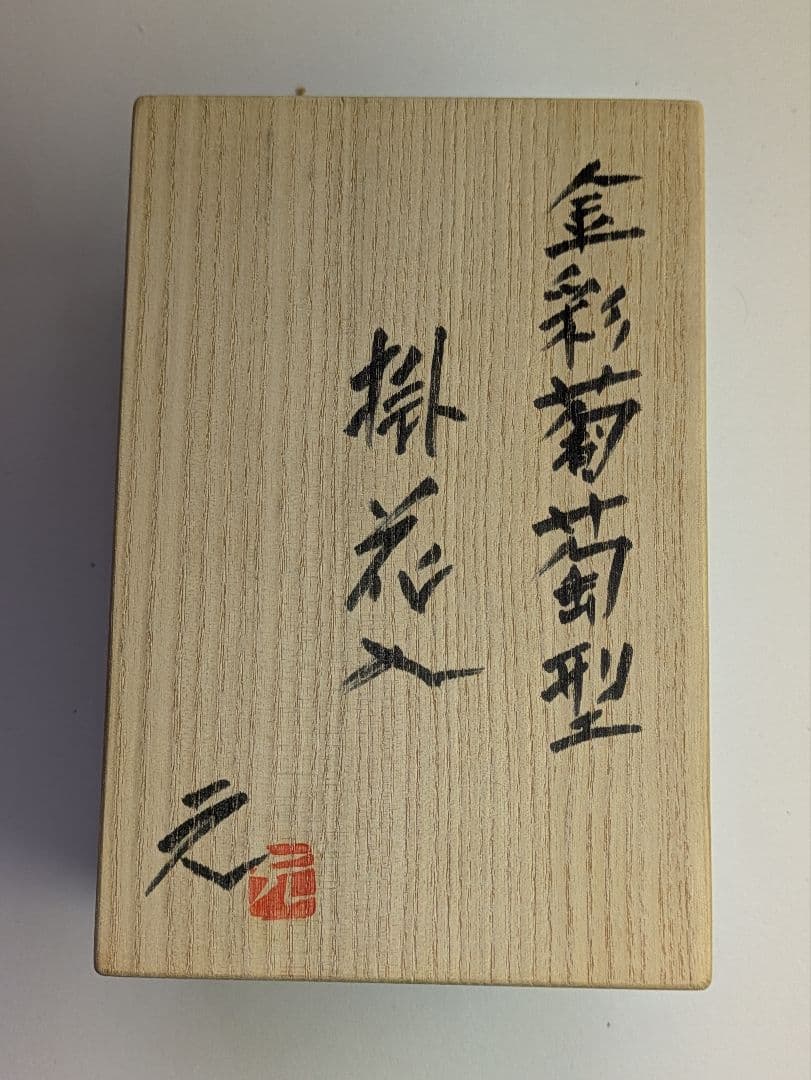 金彩葡萄型
掛花入
元
元